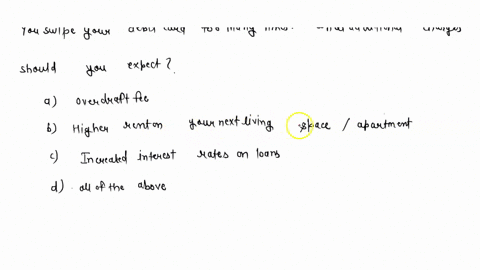 You swipe your debit card too many times. What additional charges
should you expect?
a) overdraft fee
b) Higher rent on your next living space / apartment
c) Increased interest rates on loans
d) all of the above